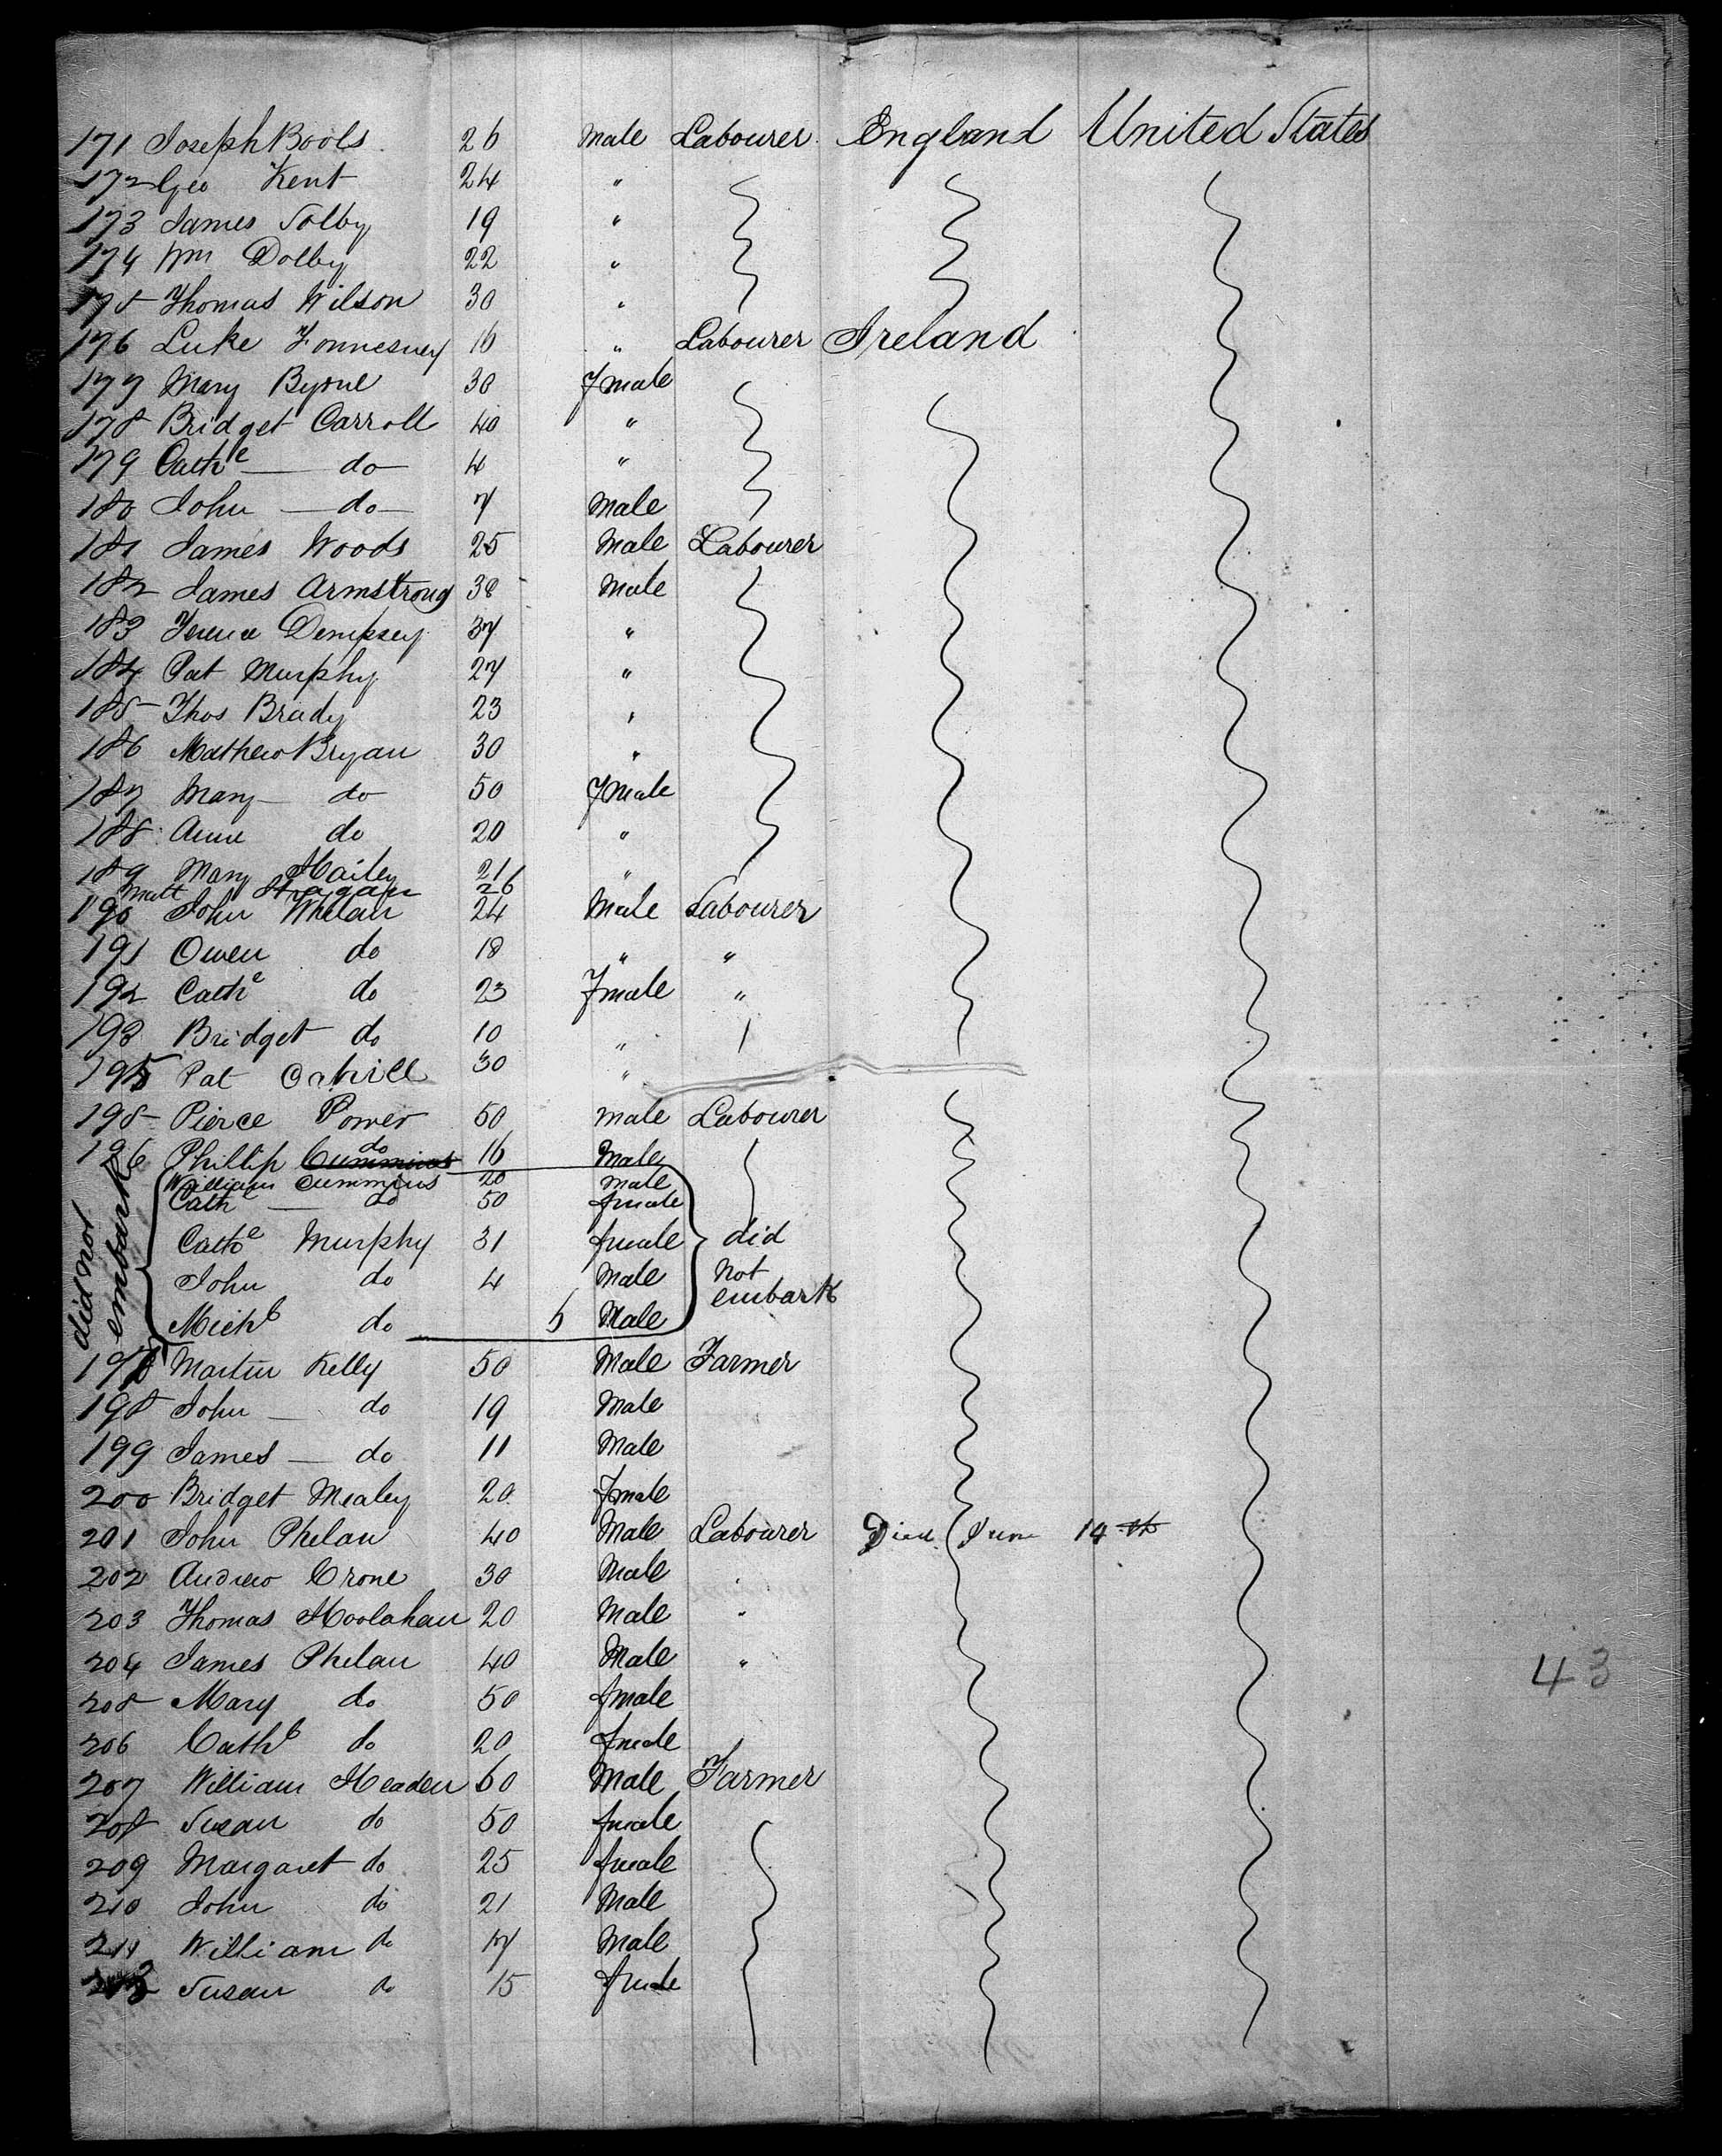 171 Joseph Bools 26 Male Labourer England United States
172 Geo Kent 24 "
173 James Solby 19 "
174 Wm Dolby 22 "
175 Thomas Wilson 30 "
176 Luke 16 " Labourer Ireland
177 Mary Byrne 30 Fmale
178 Bridget Carroll 40 "
179 Cathe do 4 "
180 John do 7 Male
181 James Woods 25 Male Labourer
182 James Armstrong 38 Male
183 Dempsey 37 "
184 Pat Murphy 27 "
185 Thos Brady 23 "
186 Mathew Bryan 30 "
187 Mary do 50 Fmale
188 Anne do 20 "
189 Mary Hailey 21 "
Matt 26
190 John Whelan 24 Male Labourer
191 Owen do 18 " "
192 Cathe do 23 Fmale "
193 Bridget do 10 "
195 Pat Cahill 30 "
195 Pierce Power 50 Male Labourer
196 Phillip Cummins do 16 Male
William Cummins 20 Male
Cath do 50 fmale
Cathe Murphy 31 fmale did
John do 4 Male not
embark
Michl do 6 Male
did not
embark
197 Martin Kelly 50 Male Farmer
198 John do 19 Male
199 James do 11 Male
200 Bridget Mealey 20 Fmale
201 John Phelan 40 Male Labourer Died June 14th
202 Andrew Crone 30 Male "
203 Thomas Hoolahan 20 Male "
204 James Phelan 40 Male "
205 Mary do 50 fmale
206 Cath do 20 fmale
207 William Headen 60 Male Farmer
208 Susan do 50 fmale
209 Margaret do 25 fmale
210 John do 21 Male
211 William do 17 Male
Susan do 15 fmale
43